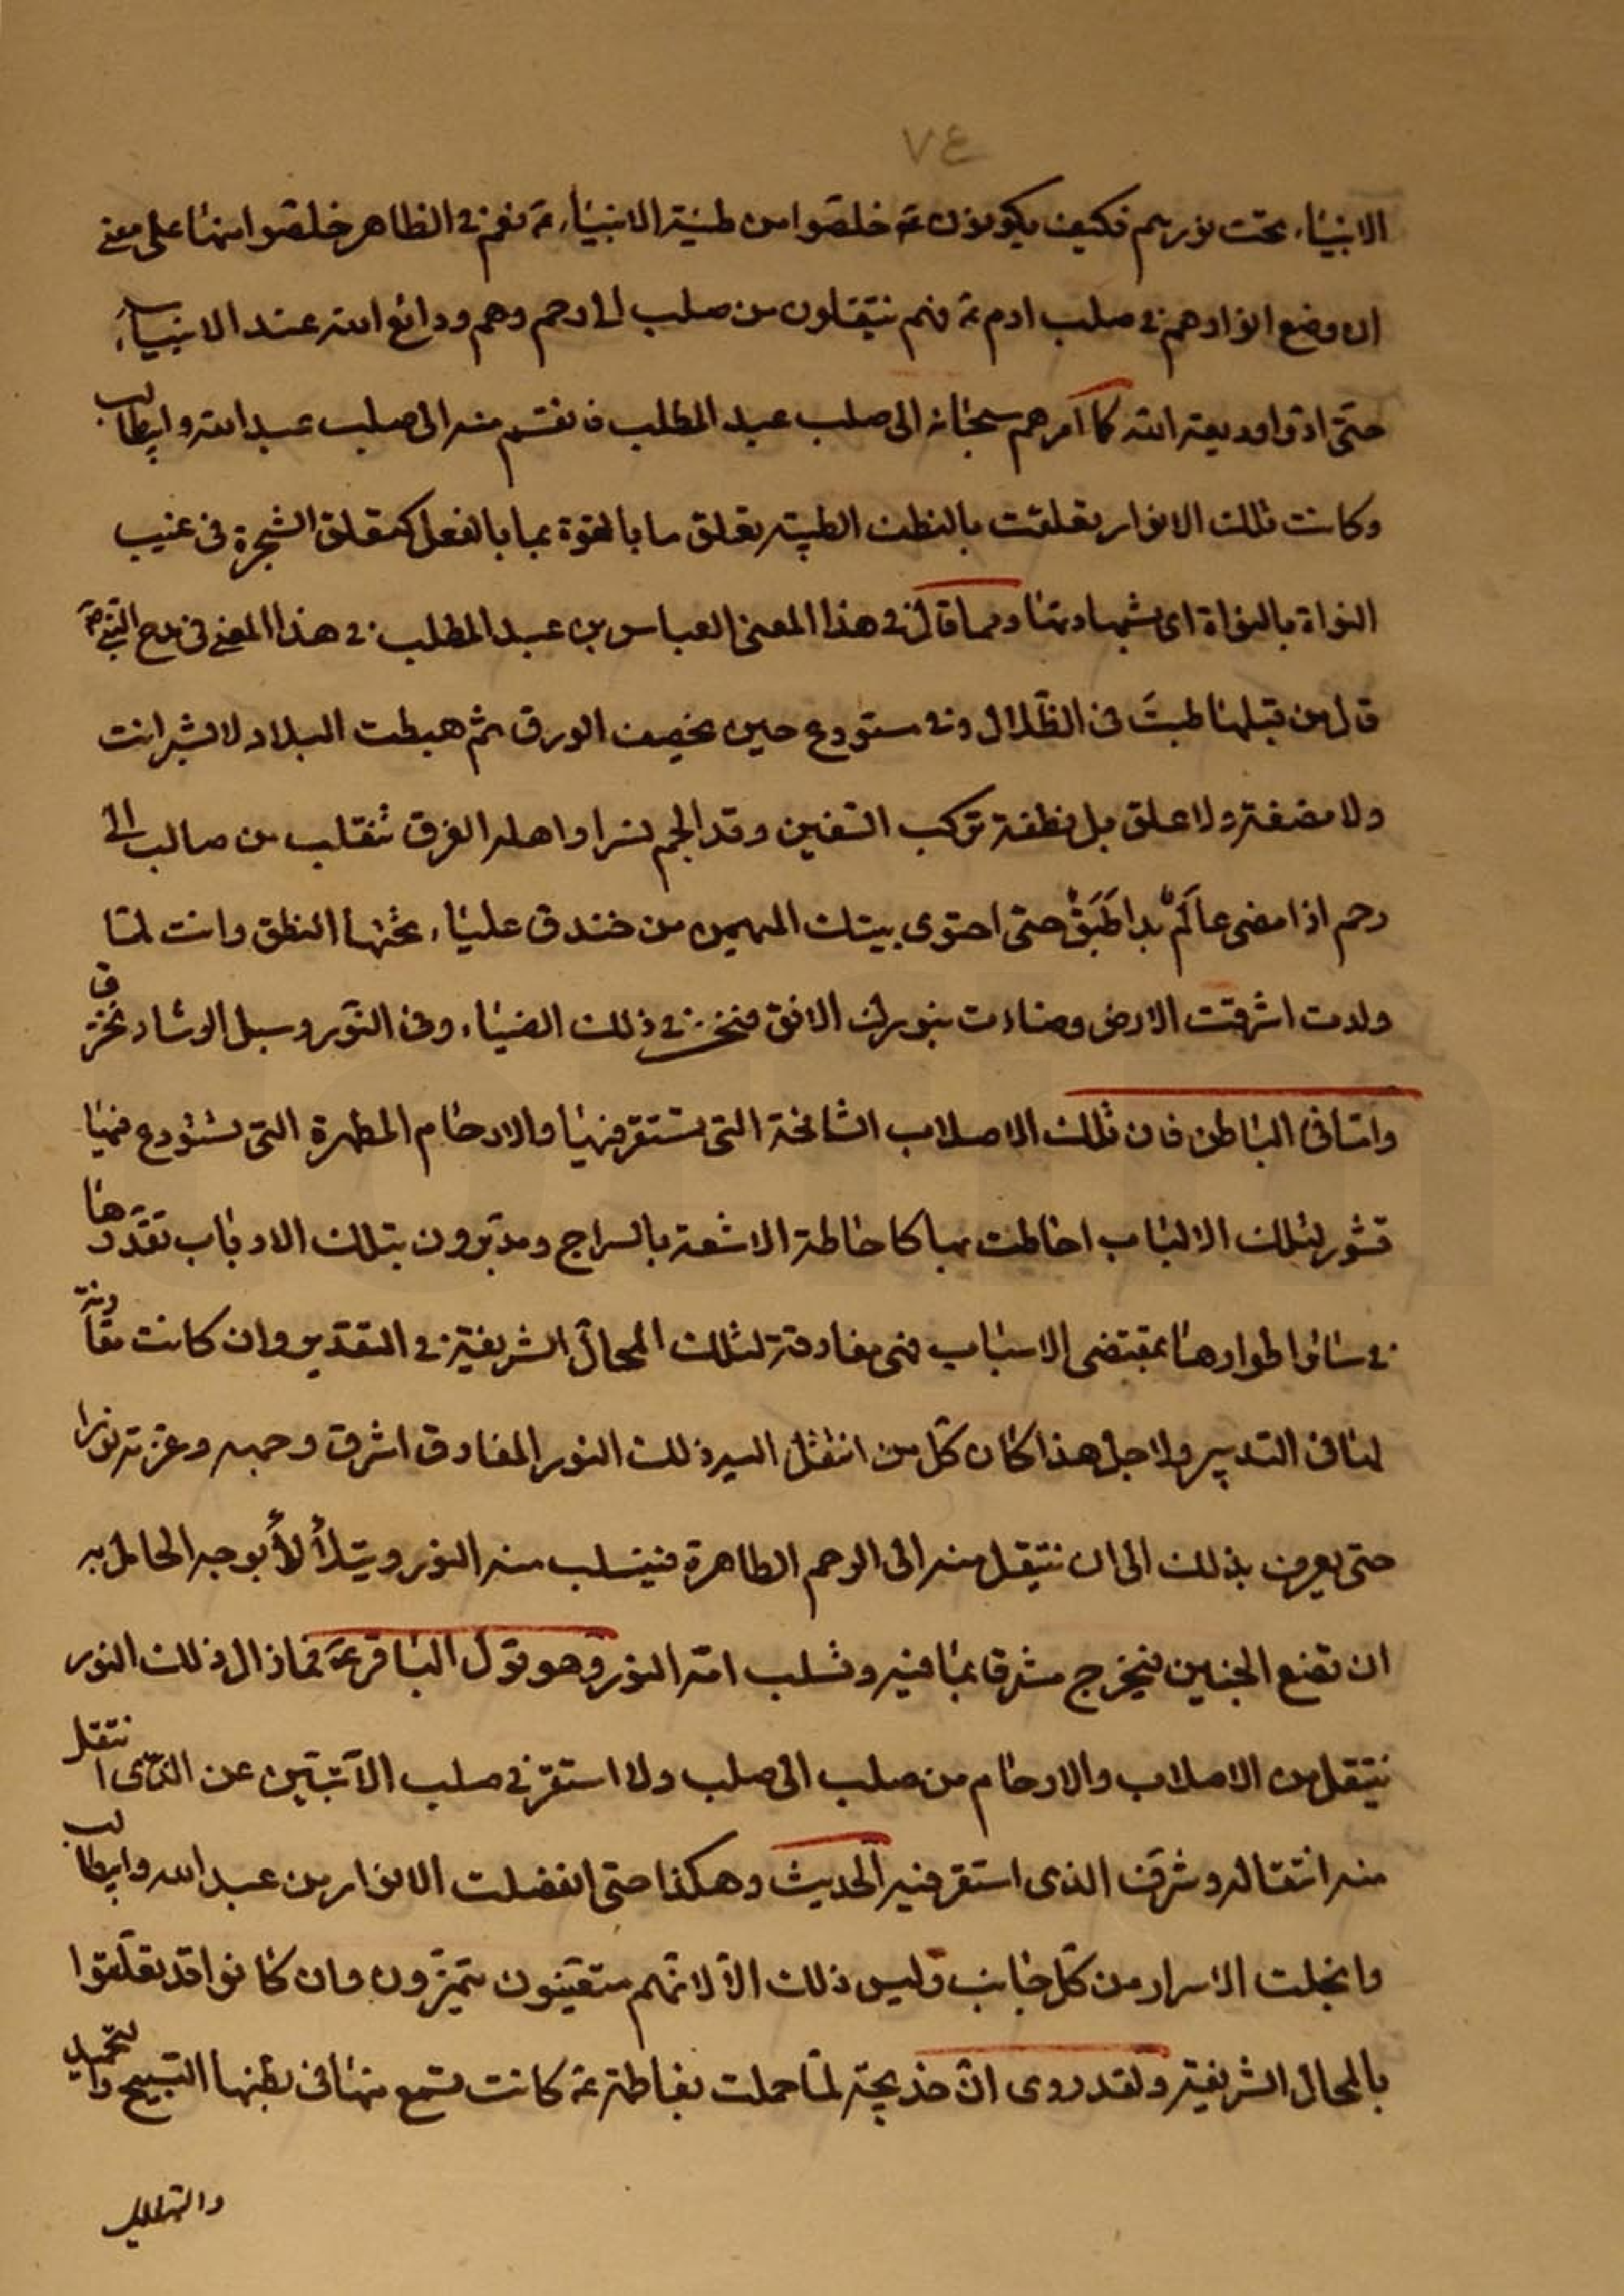 ٧٤
الانبياء تحت نورهم فكيف يكونون ع خلقوا من طينة الانبياء ع نعم في الظاهر خلقوا منها على معنى
ان وضع انوارهم في صلب ادم ع فهم ينتقلون من صلب الى رحم وهم ودائع الله عند الانبياء
حتى ادوا وديعة الله كما امرهم سبحانه الى صلب عبد المطلب فانقسم منه الى صلب عبد الله وابيطالب
وكانت تلك الانوار تعلقت بالنطف الطيبة تعلق ما بالقوة بما بالفعل كتعلق الشجرة في غيب
النواة بالنواة اى بشهادتها ومما قال في هذا المعنى العباس بن عبد المطلب في هذا المعنى في مدح النبي ص
قال من قبلها طبت في الظلال وفي مستودع حين يخصف الورق ثم هبطت البلاد لا بشر انت
ولا مضغة ولا علق بل نطفة تركب السفين وقد الجم نسرا واهله الغرق تنقلب من صالب الى
رحم اذا مضى عالَمٌ بدا طَبَقٌ حتى احتوى بيتك المهيمن من خندق علياء تحتها النطق وانت لما
ولدت اشرقت الارض وضاءت بنورك الافق فنحن في ذلك الضياء وفي النور وسبل الرشاد نخترق
واما في الباطن فان تلك الاصلاب الشامخة التى تستقر فيها والارحام المطهرة التى تستودع فيها
قشور لتلك الالباب احاطت بها كاحاطة الاشعة بالسراج ومدبرون بتلك الارباب تقدرها
في سائر اطوارها بمقتضى الاسباب فهى مفارقة لتلك المحال الشريفة في التقدير وان كانت مقارنة
لها في التدبير ولاجل هذا كان كل من انتقل اليه ذلك النور المفارق اشرق وجهه وغرته نورا
حتى يعرف بذلك الى ان ينتقل منه الى الرحم الطاهرة فيسلب منه النور ويتلألأ بوجه الحامل به
ان تضع الجنين فيخرج مشرقا بما فيه وتسلب امه النور وهو قول الباقر ع فما زال ذلك النور
ينتقل من الاصلاب والارحام من صلب الى صلب ولا استقر في صلب الا تبين عن الذى انتقل
منه انتقاله وشرف الذى استقر فيه الحديث وهكذا حتى انفصلت الانوار من عبد الله وابيطالب
وانجلت الاسرار من كل جانب وليس ذلك الا لانهم متعينون متميزون وان كانوا قد تعلقوا
بالمحال الشريفة ولقد روى ان خديجة لما حملت بفاطمة ع كانت تسمع منها في بطنها التسبيح والتحميد
والتهليل